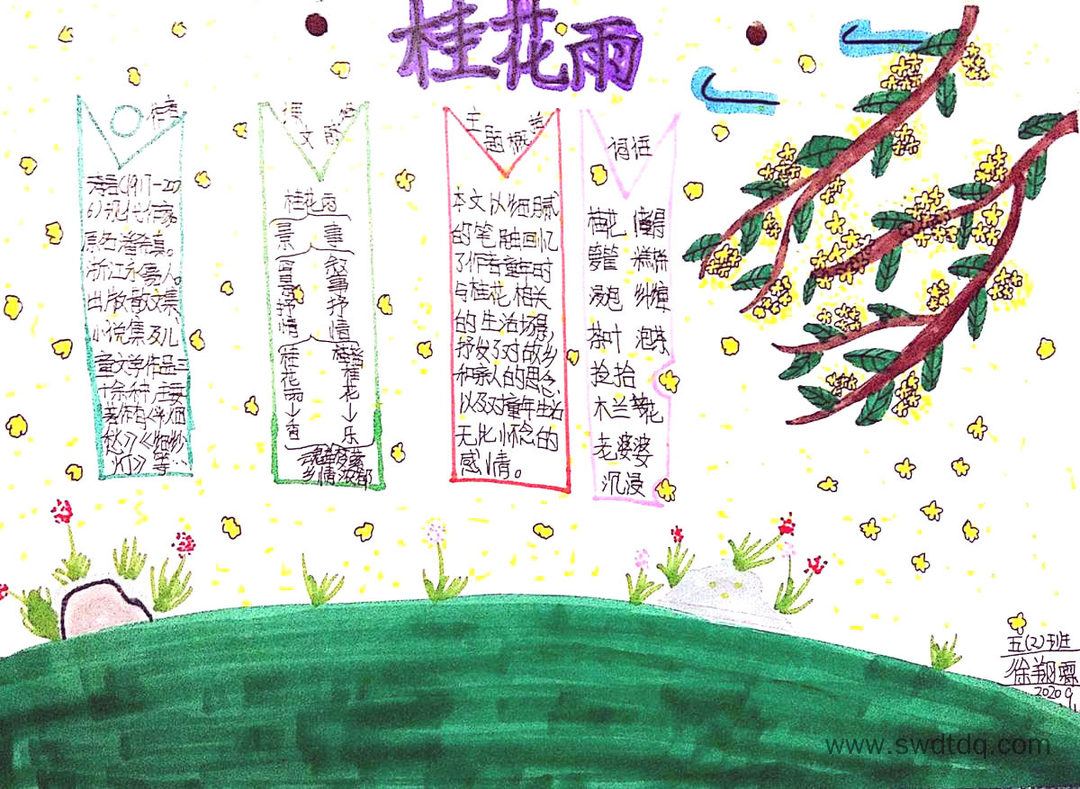 桂花雨
作者
琦君(1917-200
6)现代作家。
原名潘希真。
浙江永嘉人。
出版散文集
小说集及儿
童文学作品三
十余种,主要
著作有《烟
愁》《细纱
灯》等…
课文
桂花雨
景 事
抒情
叙事抒情
桂花雨
桂花
乐
主题概
本文以细腻
的笔触回忆
了作者童年时
与桂花相关
的生活场景,
抒发了对故乡
和亲人的思念,
以及对童年生活
无比怀念的
感情。
词
桂花 懂得
箩筐 糕饼
浸泡 纠缠
茶叶 泡茶
捡拾
木兰花
老婆婆
沉浸
五(2)班
徐翔霖
2020.9.
www.swdtdq.com